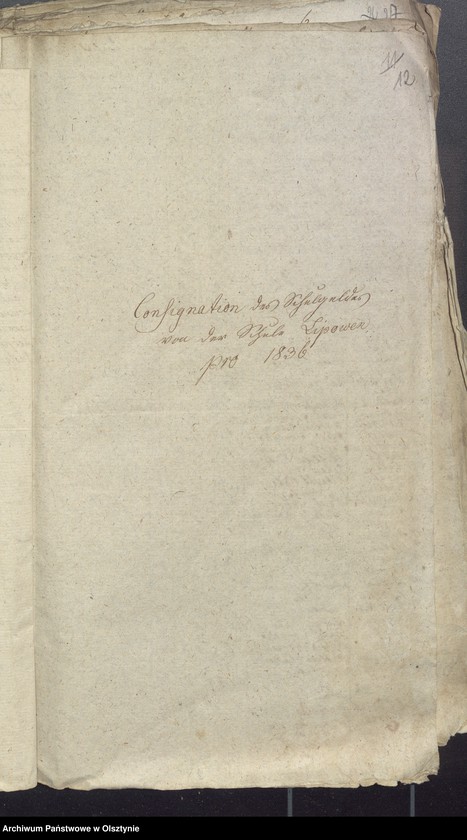 6
11
12
Consignation des Schulgeldes
von der Schule Lipowen
pro 1836
Archiwum Państwowe w Olsztynie